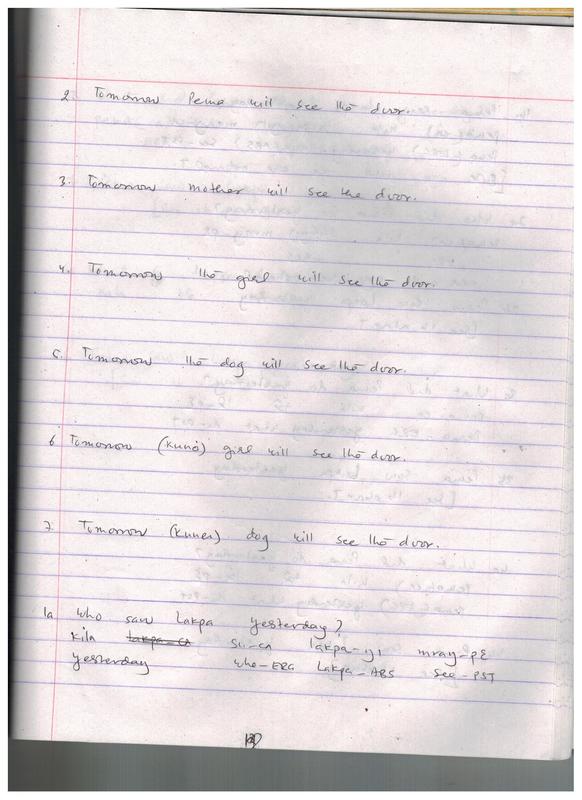 2. Tomorrow Pema will see the door.
3. Tomorrow mother will see the door.
4. Tomorrow the girl will see the door.
5. Tomorrow the dog will see the door.
6 Tomorrow (kuno) girl will see the door.
7. Tomorrow (kunen) dog will see the door.
1a who saw Lakpa yesterday?
kila lakpa-ca su-ca lakpa-yi mray-pe
yesterday who-ERG Lakpa-ABS see-PST